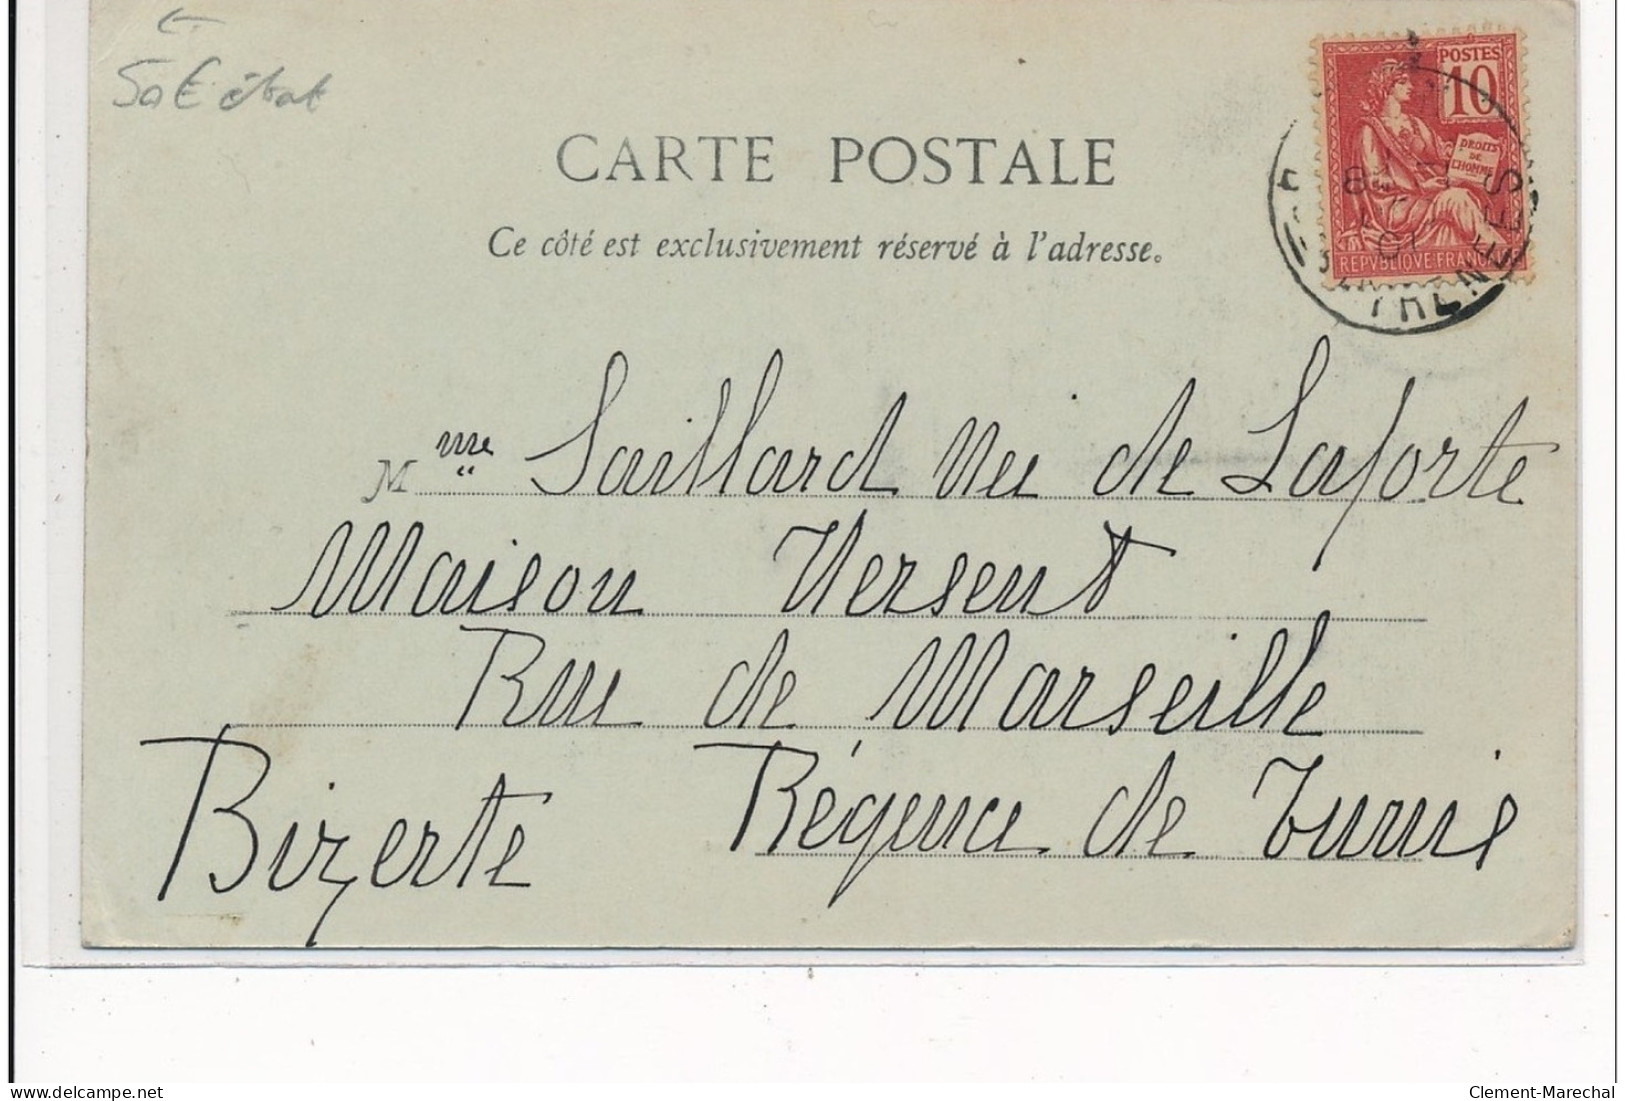 CARTE POSTALE
Ce côté est exclusivement réservé à l'adresse.
POSTES
10
DROITS
DE
L'HOMME
REPVBLIQVE FRANC
Mme Saillard Née de Laforte
Maison Versent
Rue de Marseille
Bizerte Régence de Tunis
delcampe.net
Clement-Marechal